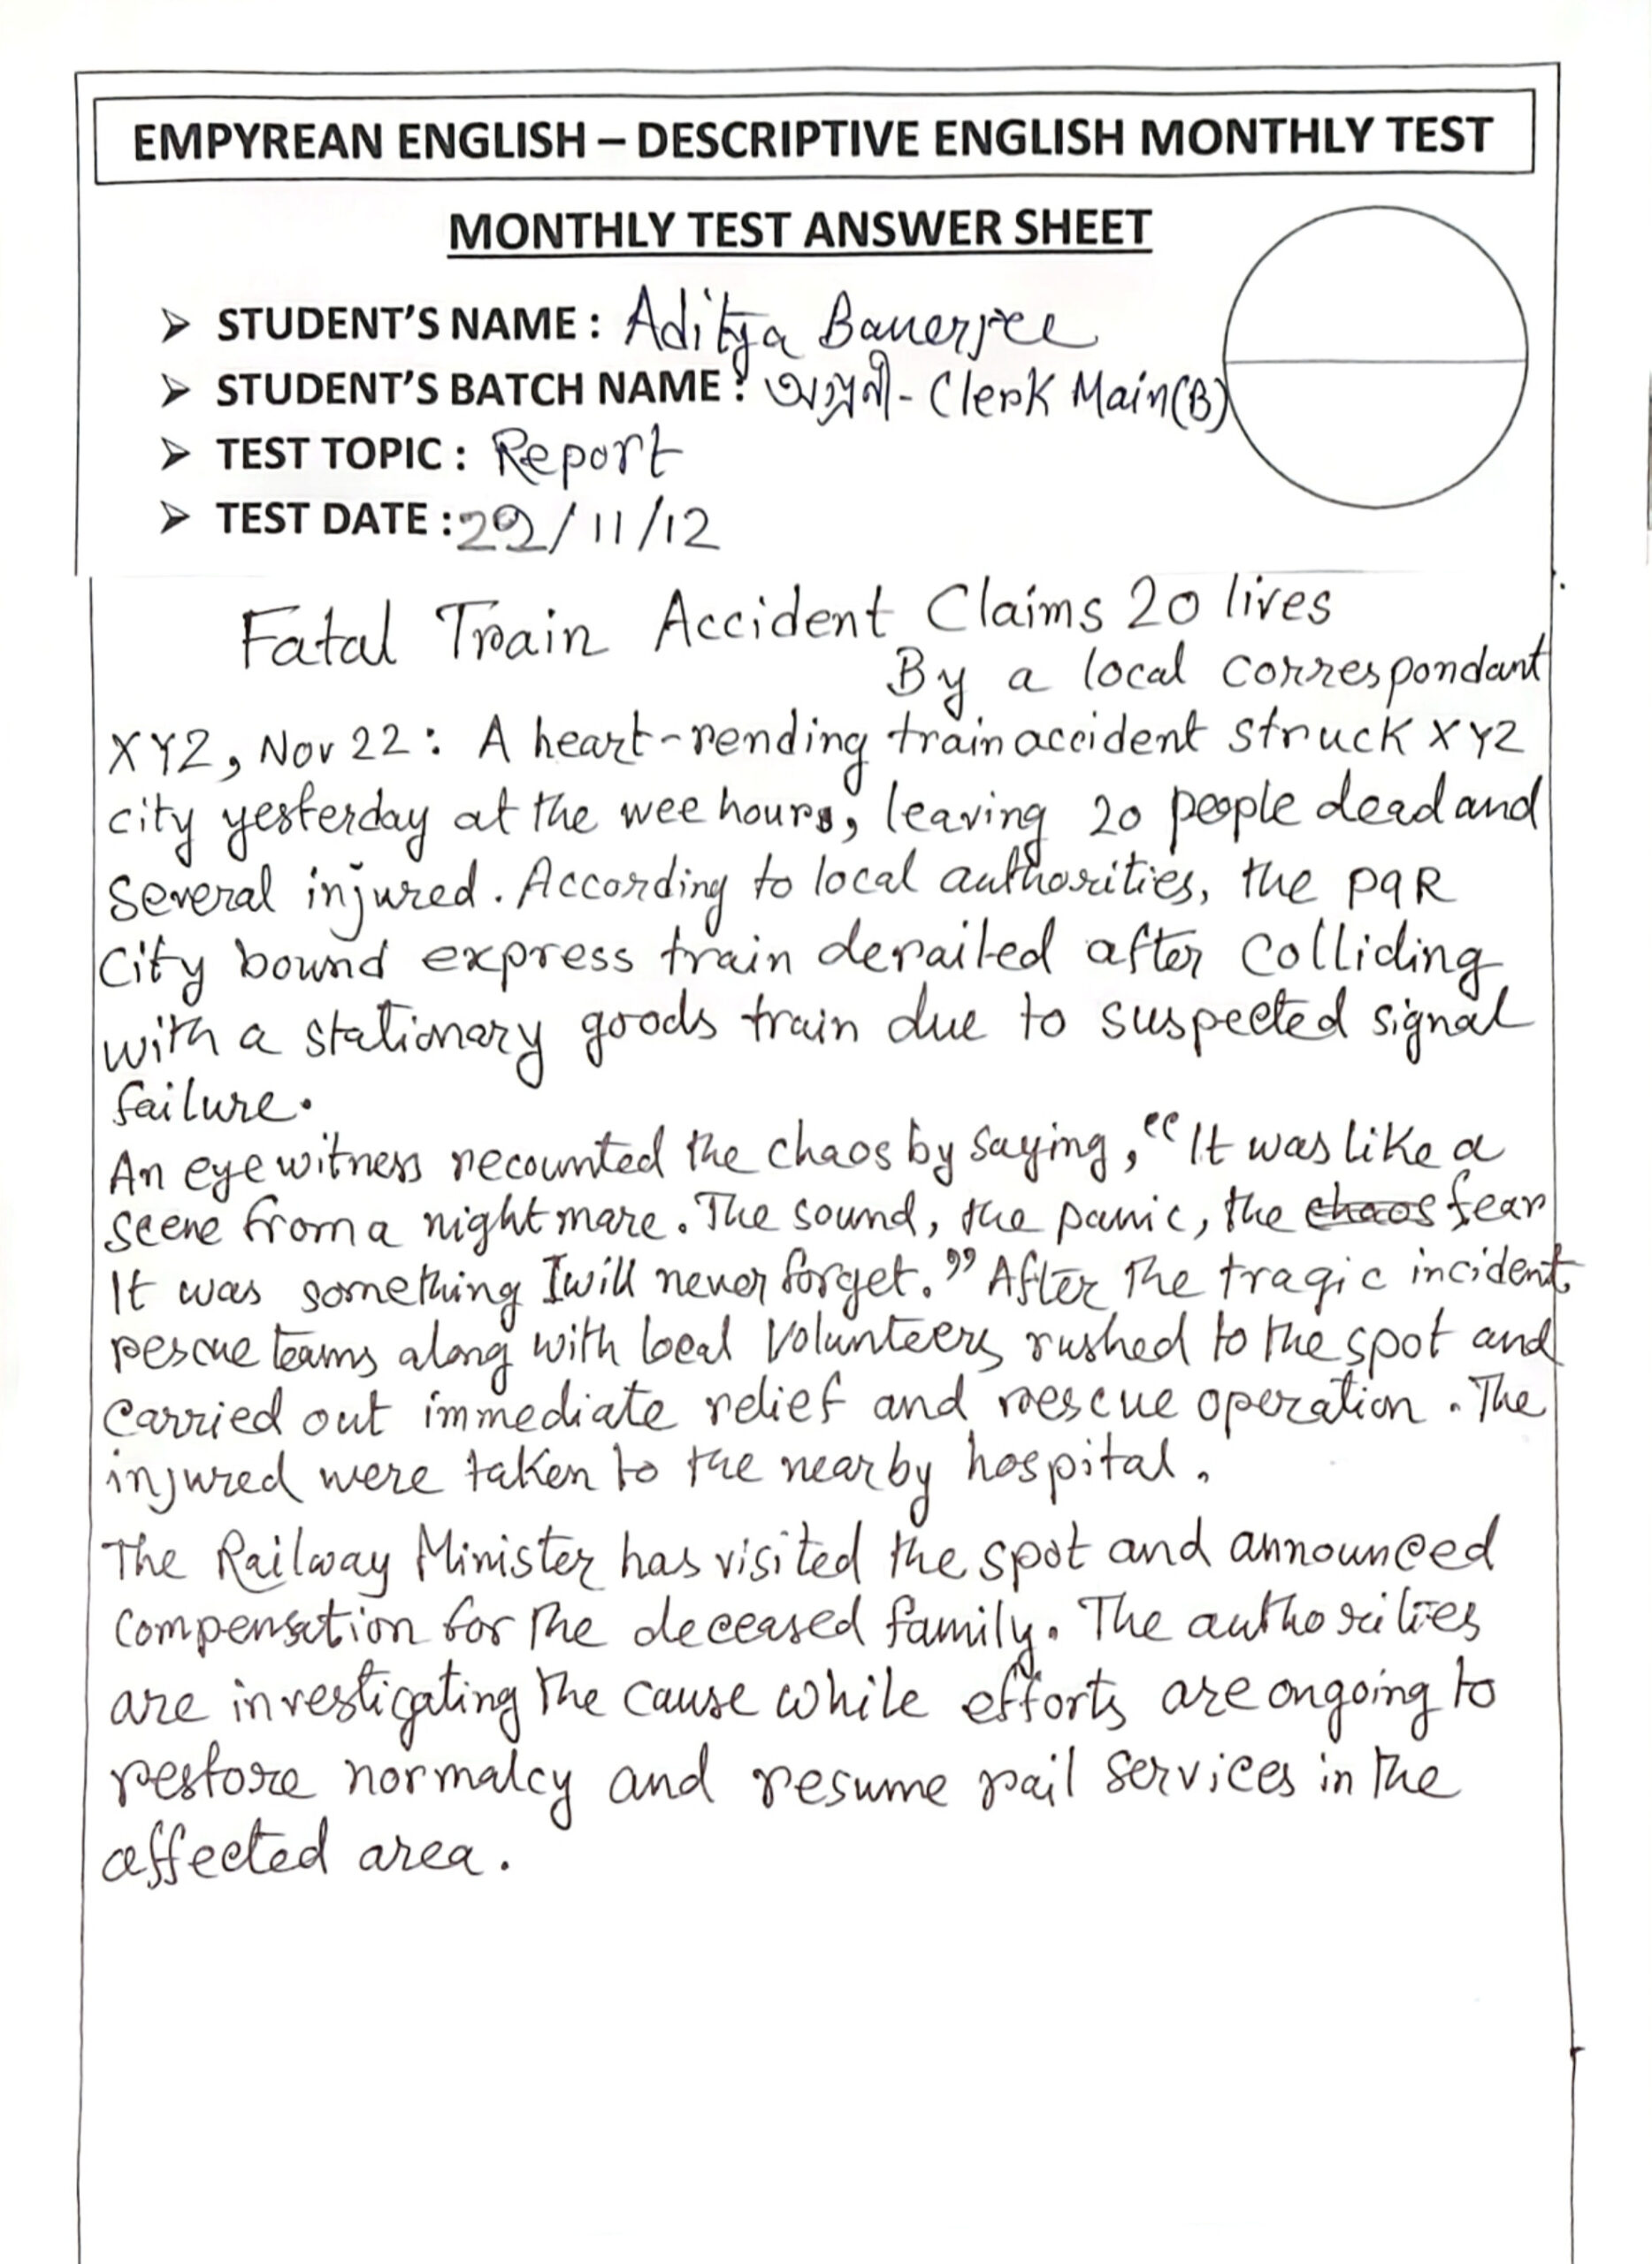 EMPYREAN ENGLISH – DESCRIPTIVE ENGLISH MONTHLY TEST
MONTHLY TEST ANSWER SHEET
➢ STUDENT'S NAME : Aditya Banerjee
➢ STUDENT'S BATCH NAME : অগ্রনী - Clerk Main(B)
➢ TEST TOPIC : Report
➢ TEST DATE : 22/11/12
Fatal Train Accident Claims 20 lives
By a local correspondant
XYZ, Nov 22: A heart-rending train accident struck XYZ
city yesterday at the wee hours, leaving 20 people dead and
several injured. According to local authorities, the PQR
City bound express train derailed after colliding
with a stationary goods train due to suspected signal
failure.
An eye witness recounted the chaos by saying, "It was like a
scene from a nightmare. The sound, the panic, the chaos fear
It was something I will never forget." After the tragic incident,
rescue teams along with local volunteers rushed to the spot and
carried out immediate relief and rescue operation. The
injured were taken to the nearby hospital.
The Railway Minister has visited the spot and announced
compensation for the deceased family. The authorities
are investigating the cause while efforts are ongoing to
restore normalcy and resume rail services in the
affected area.